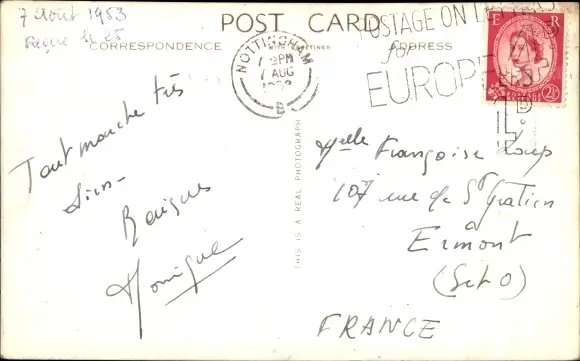 7 Août 1953
Reçue le 25
POST CARD
CORRESPONDENCE
ADDRESS
POSTAGE ON LETTERS
for
EUROPE
NOTTINGHAM
PM
7 AUG
B
E R
POSTAGE REVENUE
2½D
Tout marche très
bien
Baisers
Monique
THIS IS A REAL PHOTOGRAPH
Melle Françoise Loup
107 rue de St Gratien
à
Ermont
(S et O)
FRANCE